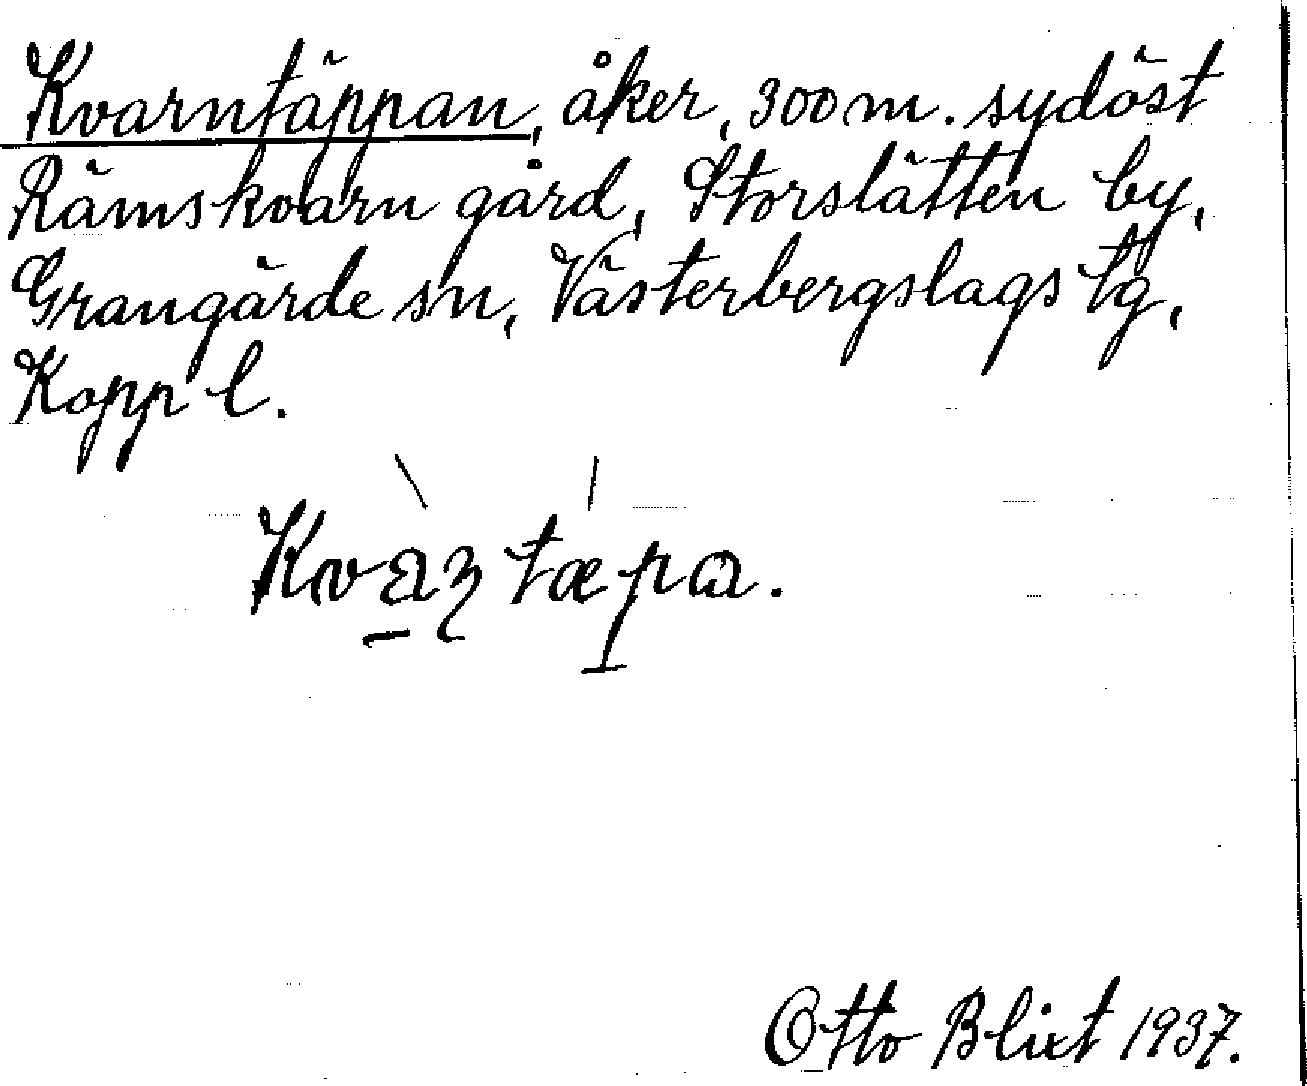 Kvarntäppan, åker, 300 m. sydöst
Rämskvarn gård, Storslätten by,
Grangärde sn, Västerbergslags tg,
Kopp l.
Kvaʒ tæpa.
Otto Blixt 1937.